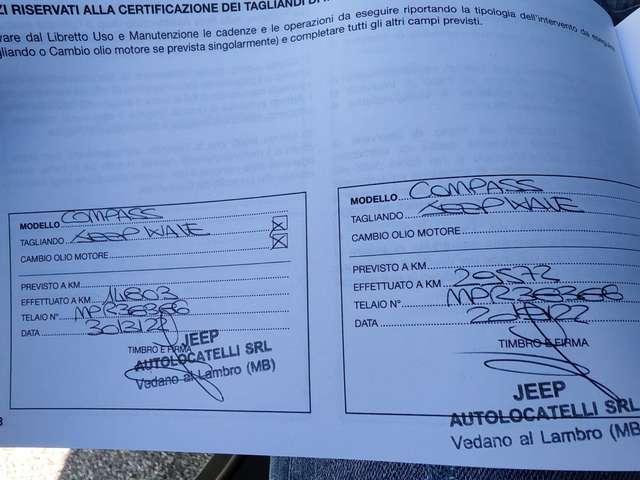 ZI RISERVATI ALLA CERTIFICAZIONE DEI TAGLIANDI DI
vare dal Libretto Uso e Manutenzione le cadenze e le operazioni da eseguire riportando la tipologia dell'intervento da eseguire
gliando o Cambio olio motore se prevista singolarmente) e completare tutti gli altri campi previsti.
MODELLO COMPASS
TAGLIANDO JEEP WAVE
CAMBIO OLIO MOTORE
PREVISTO A KM
EFFETTUATO A KM 14803
TELAIO N° MPR36366
DATA
TIMBRO E FIRMA
JEEP
AUTOLOCATELLI SRL
Vedano al Lambro (MB)
MODELLO COMPASS
TAGLIANDO JEEP WAVE
CAMBIO OLIO MOTORE
PREVISTO A KM
EFFETTUATO A KM 29572
TELAIO N°
DATA
TIMBRO E FIRMA
JEEP
AUTOLOCATELLI SRL
Vedano al Lambro (MB